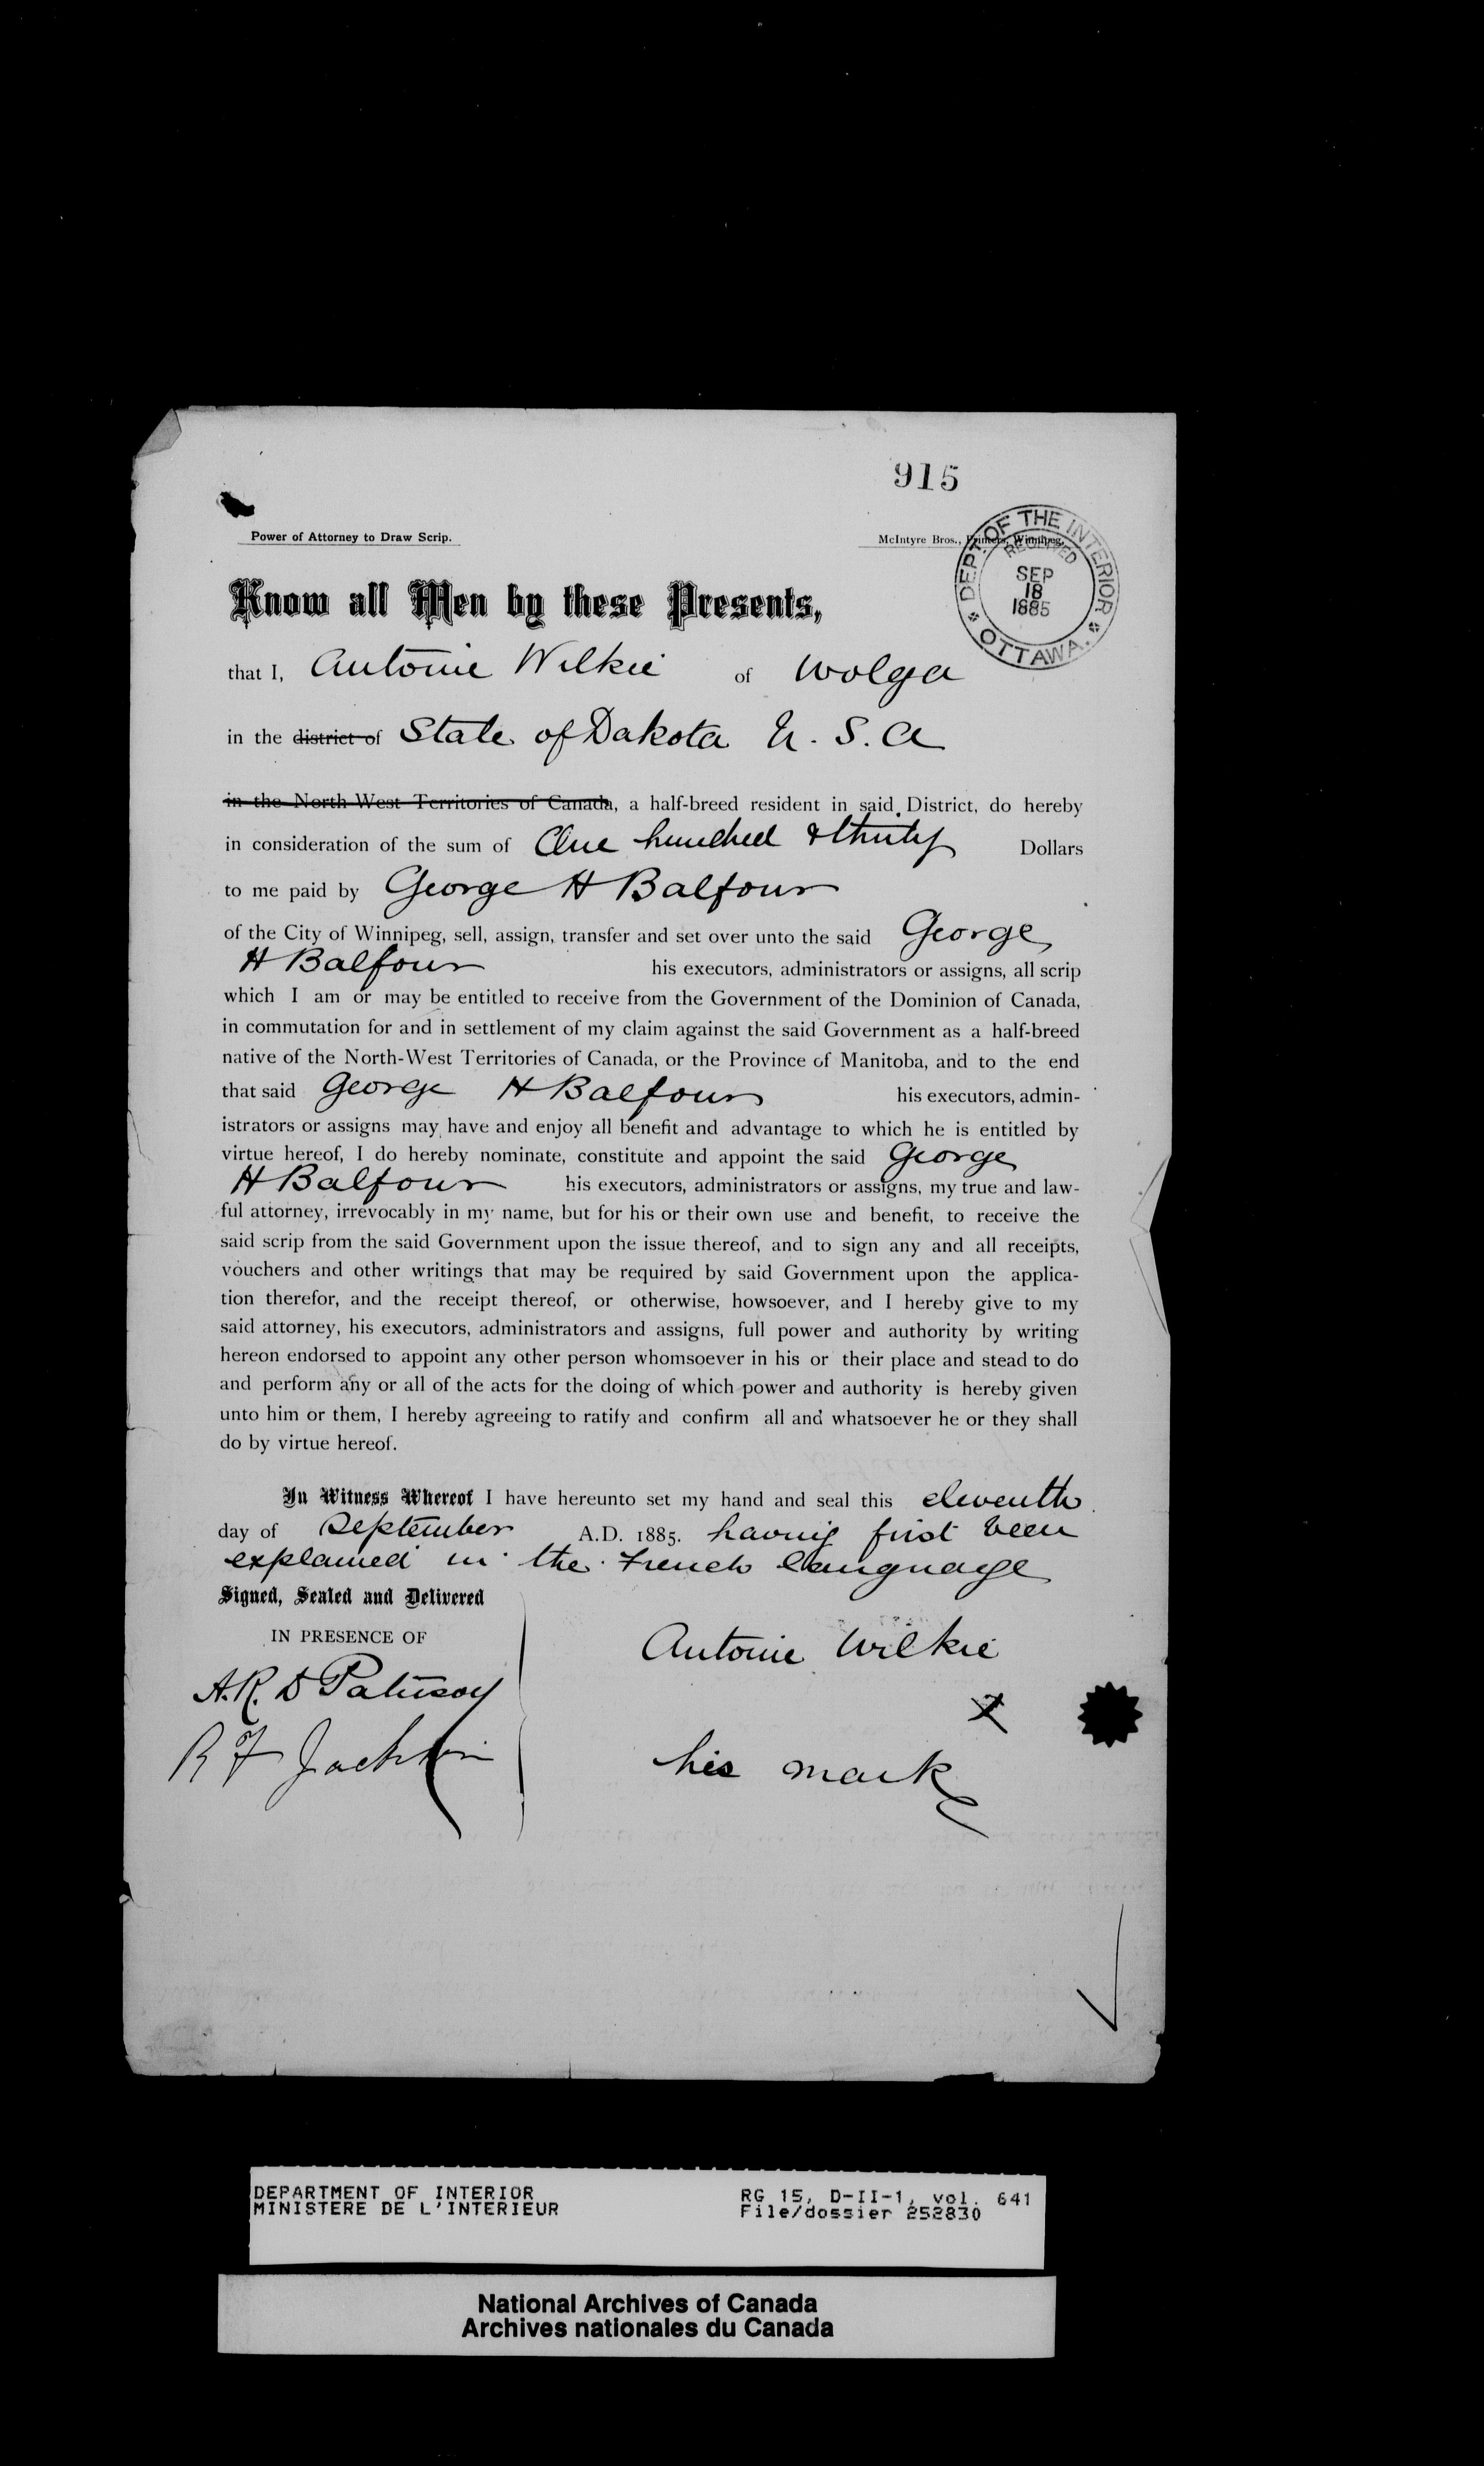 915
Power of Attorney to Draw Scrip.
McIntyre Bros., Printers, Winnipeg.
DEPT. OF THE INTERIOR
RECEIVED
SEP
18
1885
OTTAWA.
Know all Men by these Presents,
that I, Antoine Wilkie of Wolga
in the district of State of Dakota U. S. A
in the North-West Territories of Canada, a half-breed resident in said District, do hereby
in consideration of the sum of One hundred & thirty Dollars
to me paid by George H Balfour
of the City of Winnipeg, sell, assign, transfer and set over unto the said George
H Balfour his executors, administrators or assigns, all scrip
which I am or may be entitled to receive from the Government of the Dominion of Canada,
in commutation for and in settlement of my claim against the said Government as a half-breed
native of the North-West Territories of Canada, or the Province of Manitoba, and to the end
that said George H Balfour his executors, admin-
istrators or assigns may have and enjoy all benefit and advantage to which he is entitled by
virtue hereof, I do hereby nominate, constitute and appoint the said George
H Balfour his executors, administrators or assigns, my true and law-
ful attorney, irrevocably in my name, but for his or their own use and benefit, to receive the
said scrip from the said Government upon the issue thereof, and to sign any and all receipts,
vouchers and other writings that may be required by said Government upon the applica-
tion therefor, and the receipt thereof, or otherwise, howsoever, and I hereby give to my
said attorney, his executors, administrators and assigns, full power and authority by writing
hereon endorsed to appoint any other person whomsoever in his or their place and stead to do
and perform any or all of the acts for the doing of which power and authority is hereby given
unto him or them, I hereby agreeing to ratify and confirm all and whatsoever he or they shall
do by virtue hereof.
In Witness Whereof I have hereunto set my hand and seal this eleventh
day of September A.D. 1885. having first been
explained in the French language
Signed, Sealed and Delivered
IN PRESENCE OF
Antoine Wilkie
A. R. D
X
R F Jackson
his mark
DEPARTMENT OF INTERIOR
MINISTERE DE L'INTERIEUR
RG 15, D-II-1, vol. 641
File/dossier 252830
National Archives of Canada
Archives nationales du Canada